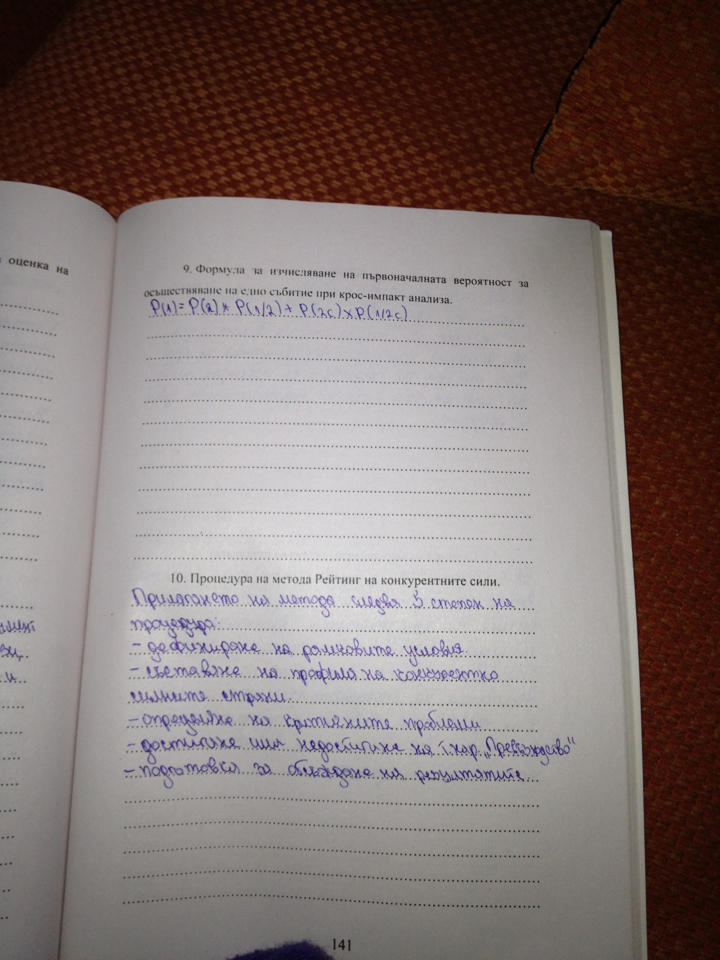 оценка на
9. Формула за изчисляване на първоначалната вероятност за
осъществяване на едно събитие при крос-импакт анализа.
P(1) = P(2) * P(1/2) + P(2c) x P(1/2c)
10. Процедура на метода Рейтинг на конкурентните сили.
Прилагането на метода следва 5 степен на
процедура:
- дефиниране на рамковите условия
- съставяне на профила на конкурентно
силните страни.
- определяне на критичните проблеми
- достигане или недостигане на "Превъзходство"
- подготовка за обсъждане на резултатите
141